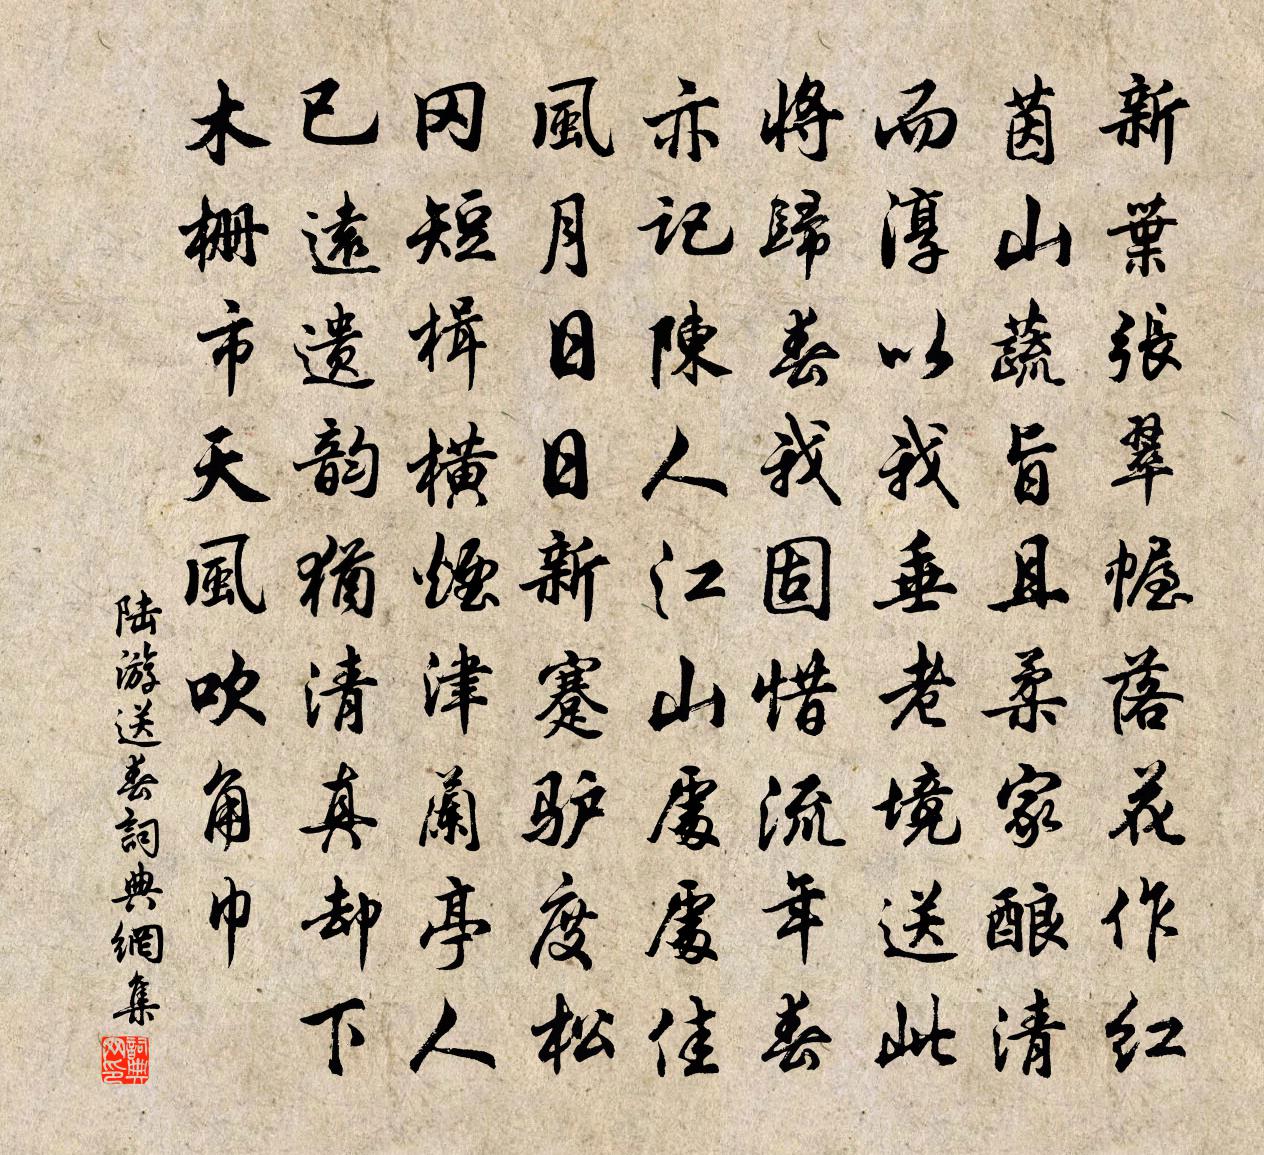 新葉張翠幄落花作紅
茵山蔬旨且柔家酿清
而淳以我垂老境送此
將歸春我固惜流年春
亦記陳人江山處處佳
風月日日新蹇驴度松
冈短楫橫煙津蘭亭人
已遠遗韵猶清真却下
木栅市天風吹角巾
陆游送春詞典網集
詞典网印